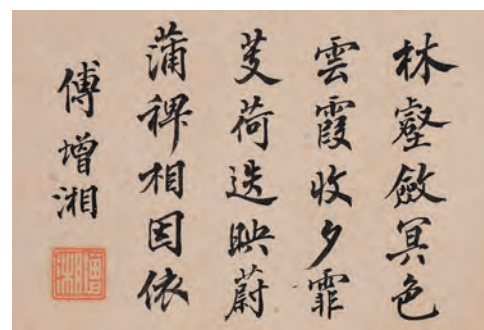 林壑斂冥色
雲霞收夕霏
芰荷迭映蔚
蒲稗相因依
傅增湘
增湘